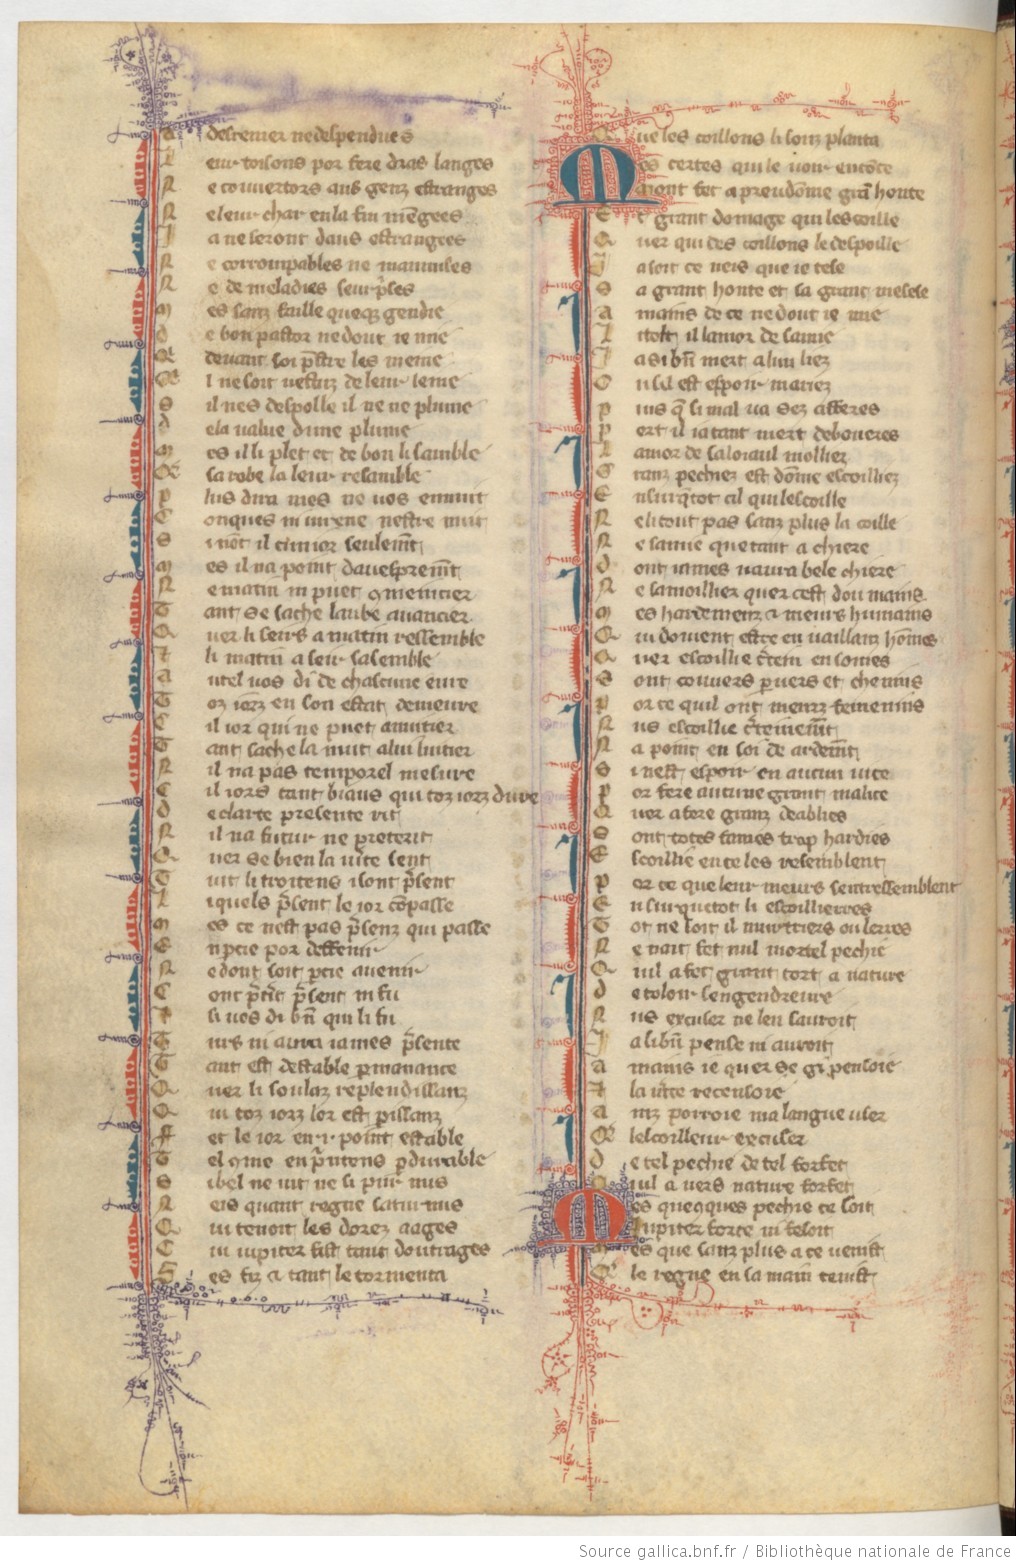 desrenier ne despendues
L eur toisons por fere dras langes
N e couvertors aus genz estranges
N e leur char en la fin mengees
J a ne seront dans estrangees
N e corrompables ne maumises
N e de meladies seurprises
M es sanz faille queque gendie
D e bon pastor ne dout ie mie
Q devant soi pestre les meine
Q l ne soit vestuz de leur leine
S il nes despolle il ne ne plume
A ela value dune plume
M es il li plet et de bon li samble
Q sa robe la leur resamble
P lus dirai mes ne vos ennuit
C onques ni virent nestre nuit
S i nont il cun ior seulement
M es il na point davesprement
N e matin ni puet commencier
T ant se sache laube avancier
Q uer li seirs a matin ressemble
E t li matin a seir sasemble
A utel vos di de chascune eure
T oz iorz en son estat demeure
C il ior qui ne puet anuitier
T ant sache la nuit a lui luitier
N il na pas temporel mesure
C il iors tant biaus qui toz iorz dure
D e clarte presente rit
N il na futur ne preterit
Q uer se bien la verite sent
T uit li troi tens i sont present
L iquels present le ior compasse
M es ce nest pas present qui passe
E n partie por deffenir
N e dont soit partie avenir
C
li vos di bien qui li fu
iames presente
T ant est destable permanance
Q uer li soulaz replendissanz
Q ui toz iorz lor est parissanz
F et le ior en .i. point estable
T el comme en printens pardurable
S i bel ne vit ne si pur nus
N eis quant regne saturnus
Q ui tenoit les dorez aages
C ui iupiter fist tant doutrages
S es fiz et tant le tormenta
Q ue les coillons li soupplanta
M es certes qui le voir en conte
M out fet a preudomme grant honte
E t grant domage qui lescoille
Q uer qui des coillons le despoille
J a soit ce neis que ie tese
S a grant honte et sa grant mesese
A u mains de ce ne dout ie mie
L i tolt il lamor de samie
J a si bien niert a lui liez
O u sil est espoir mariez
P uis que si mal va ses afferes
P ert il ia tant niert deboneres
L amor de sa loiaul molliez
G ranz pechiez est domme escoilliez
E nsurquetot cil qui lescoille
N e li tout pas sanz plus la coille
N e samie que tant a chiere
D ont iames naura bele chiere
N e samoillier quer cest dou mains
M es hardement et meurs humains
Q ui doivent estre en vaillanz hommes
Q uer escoillie certein en somes
S ont couvers pervers et chenins
P or ce quil ont meurz femenins
N us escoillie certeinement
N a point en soi de ardement
S i nest espoir en aucun vice
P or fere aucune grant malice
Q uer a fere granz deablies
S ont totes fames trop hardies
E scoillie en ce les resemblent
P or ce que leur meurs sentressemblent
E nsurquetot li escoillierres
T ot ne soit il murtriers ou lerres
N e nait fet nul mortel pechie
Q uil a fet grant tort a nature
D e tolour sengendreure
N us excuser ne len sauroit
J a li bien pense ni auroit
A mains ie quer se gi pensoie
E t la verite recensoie
A inz porroie ma langue user
Q lescoilleur excuser
D e tel pechie de tel forfet
Q uil a vers nature forfet
M es quequques pechie ce soit
J upiter force ni fesoit
M es que sanz plus a ce venist
Q le regne en sa main tenist